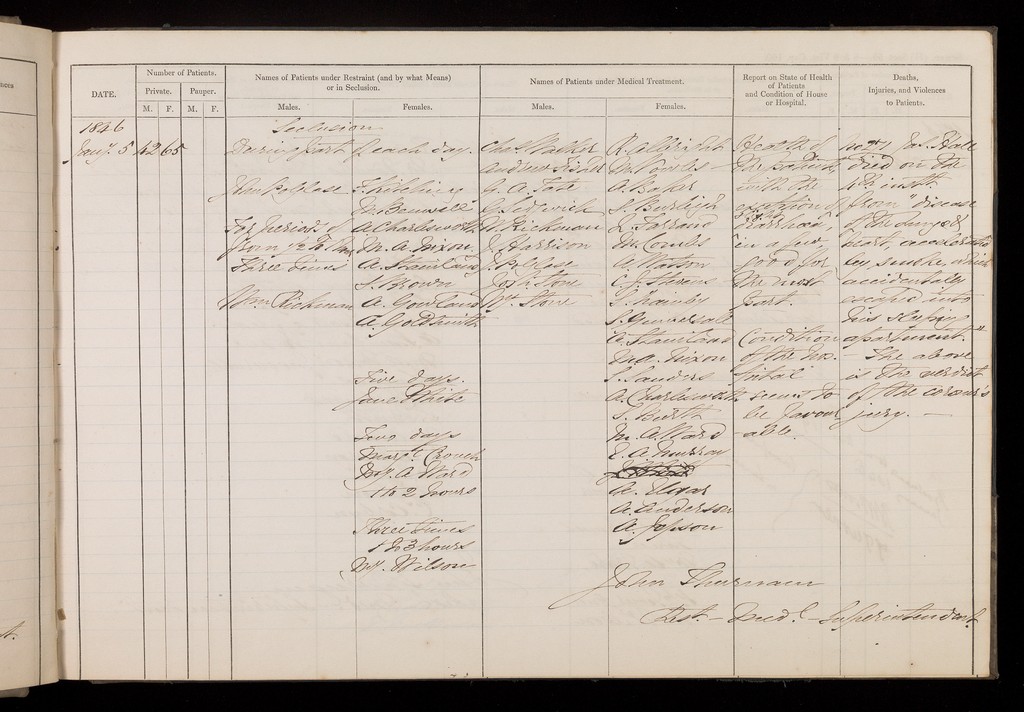 DATE.
Number of Patients.
Private. Pauper.
M. F. M. F.
Names of Patients under Restraint (and by what Means)
or in Seclusion.
Males. Females.
Names of Patients under Medical Treatment.
Males. Females.
Report on State of Health
of Patients
and Condition of House
or Hospital.
Deaths,
Injuries, and Violences
to Patients.
1846
Jany. 5 42 65
Seclusion
During part of each day.
John
For periods of
from ½ to
Three times
Wm. Rickman
F. Kitching
A. Charlesworth
M. A. Nixon
A. Staniland
S. Brown
A. Goldsmith
Five days.
Jane White
Two days
Margt. Crouch
My. A. Ward
1 to 2 hours
Three times
1 to 3 hours
My. Wilson
Chas. Walker
Andrew
G. A. Tate
G. Sedgwick
W. Rickman
J. Harrison
Josh. Stone
Wm. Stone
R. Albright
A. Baker
S. Burleigh
L. Farrand
M. Combs
A. Watson
C. J. Stevens
A. Staniland
M. A. Nixon
S. Sanders
A. Charlesworth
M. A. Ward
E. A. Murray
A. Anderson
A. Jepson
Health of
the patients,
with the
exception of
Diarrhœa,
in a few,
good for
the most
part.
Condition
of the Hos-
pital
seems to
be favour
-able.
Jas. Hall
died on the
4th inst.
from "disease
of the lungs &
heart, accelerated
by smoke which
accidentally
escaped into
his sleeping
apartment."
— The above
is the verdict
of the coroner's
jury. —
John Thurnam
Rest. - Medl. - Superintendent.